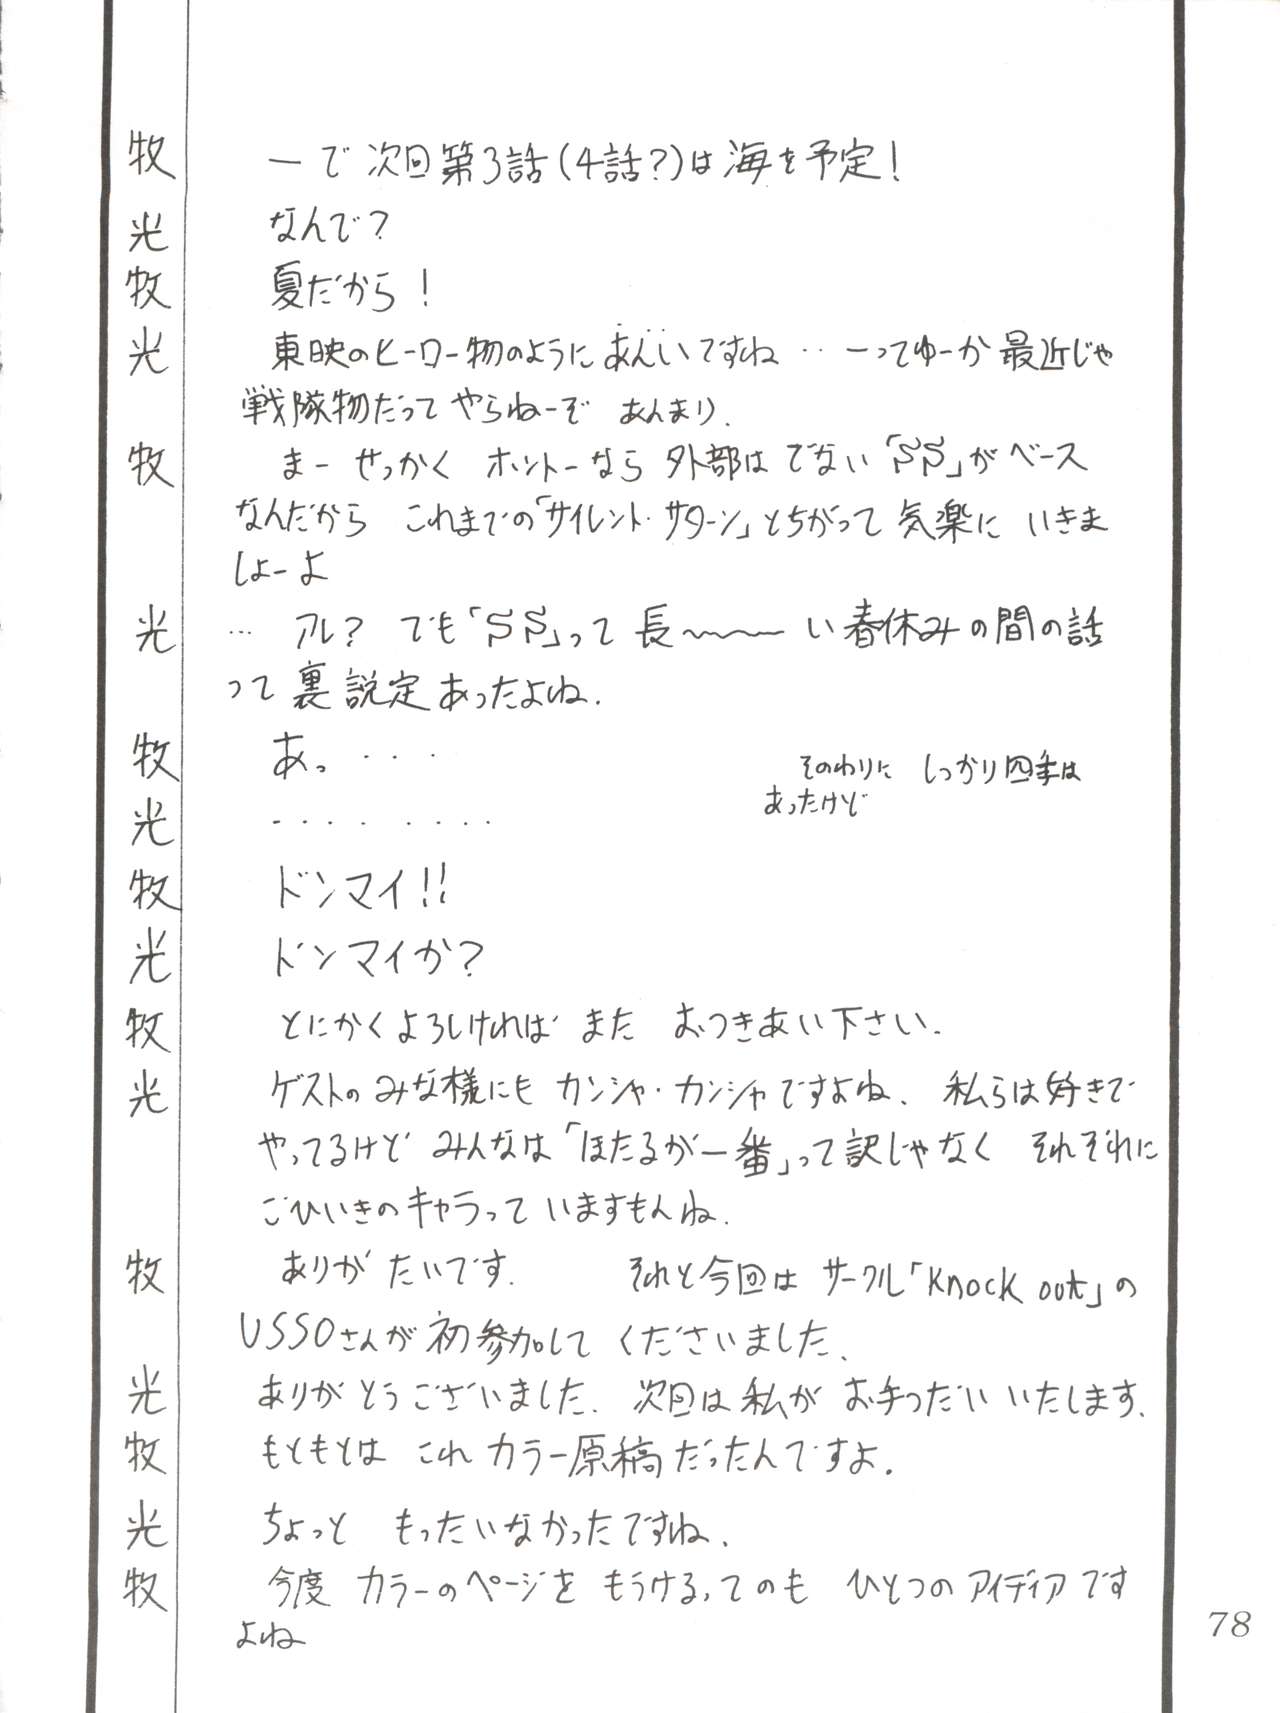 牧 ーで 次回 第3話(4話?)は 海を予定!
光 なんで?
牧 夏だから!
光 東映のヒーロー物のように あんいですね ‥ーってゆーか 最近じゃ
戦隊物だって やらねーぞ あんまり.
牧 まー せっかく ホントーなら 外部は でない「SS」がベース
なんだから これまでの「サイレント・サターン」とちがって 気楽に いきま
しょーよ
光 … アレ? でも「SS」って 長〜〜〜い 春休みの間の話
って 裏設定 あったよね.
牧 あっ ・・・
そのわりに しっかり四季は
あったけど
光 ・・・・ ・・・・
牧 ドンマイ!!
光 ドンマイか?
牧 とにかくよろしければ また おつきあい下さい.
光 ゲストの みな様にも カンシャ・カンシャですよね. 私らは好きで
やってるけど みんなは「ほたるが一番」って訳じゃなく それぞれに
ごひいきのキャラって いますもんね.
牧 ありがたいです. それと今回は サークル「Knock out」の
USSOさんが 初参加して くださいました.
光 ありがとうございました. 次回は私が お手つだい いたします.
牧 もともとは これ カラー原稿だったんですよ.
光 ちょっと もったいなかったですね.
牧 今度 カラーのページを もうけるってのも ひとつの アイディアです
よね
78